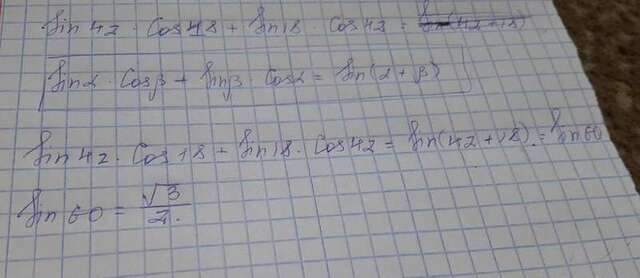 Sin 42 · Cos 18 + Sin 18 · Cos 42 =
Sin α · Cos β + Sin β · Cos α = Sin(α + β)
Sin 42 · Cos 18 + Sin 18 · Cos 42 = Sin(42 + 18) = Sin 60
Sin 60 = √3/2.